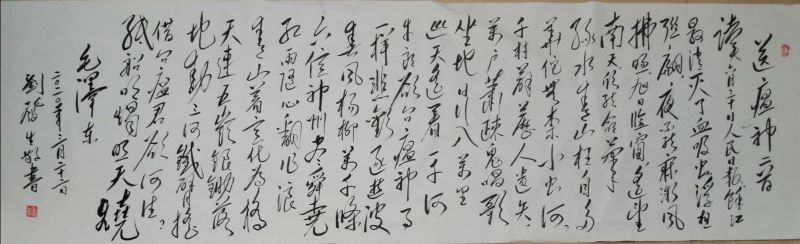 送瘟神二首
读六月三十日人民日報餘江
县消灭了血吸虫浮想
联翩夜不能寐微风
拂煦旭日临窗遥望
南天欣然命笔
绿水青山枉自多
華佗無奈小虫何
千村薜荔人遗矢
萬户萧疏鬼唱歌
坐地日行八萬里
巡天遥看一千河
牛郎欲问瘟神事
一样悲歡逐逝波
春風杨柳萬千條
六億神州尽舜尧
红雨随心翻作浪
青山着意化为橋
天連五嶺银锄落
地動三河鐵臂摇
借问瘟君欲何往
纸船明烛照天燒
毛澤东
二〇二〇年二月二十二日
劉啓生敬書